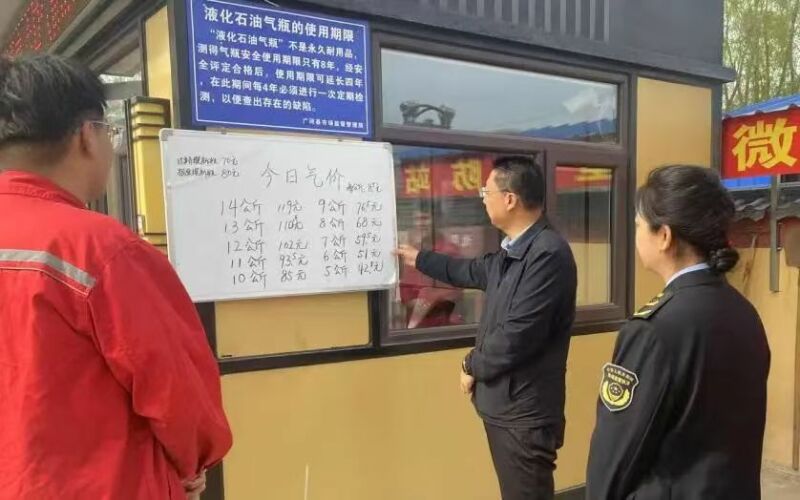 液化石油气瓶的使用期限
“液化石油气瓶”不是永久耐用品,
测得气瓶安全使用期限只有8年,经安
全评定合格后,使用期限可延长四年
,在此期间每4年必须进行一次定期检
测,以便查出存在的缺陷。
广河县市场监督管理局
70元
80元
今日气价
14公斤 119元 9公斤 76.5元
13公斤 110.5元 8公斤 68元
12公斤 102元 7公斤 59.5元
11公斤 93.5元 6公斤 51元
10公斤 85元 5公斤 42.5元
微
站
防